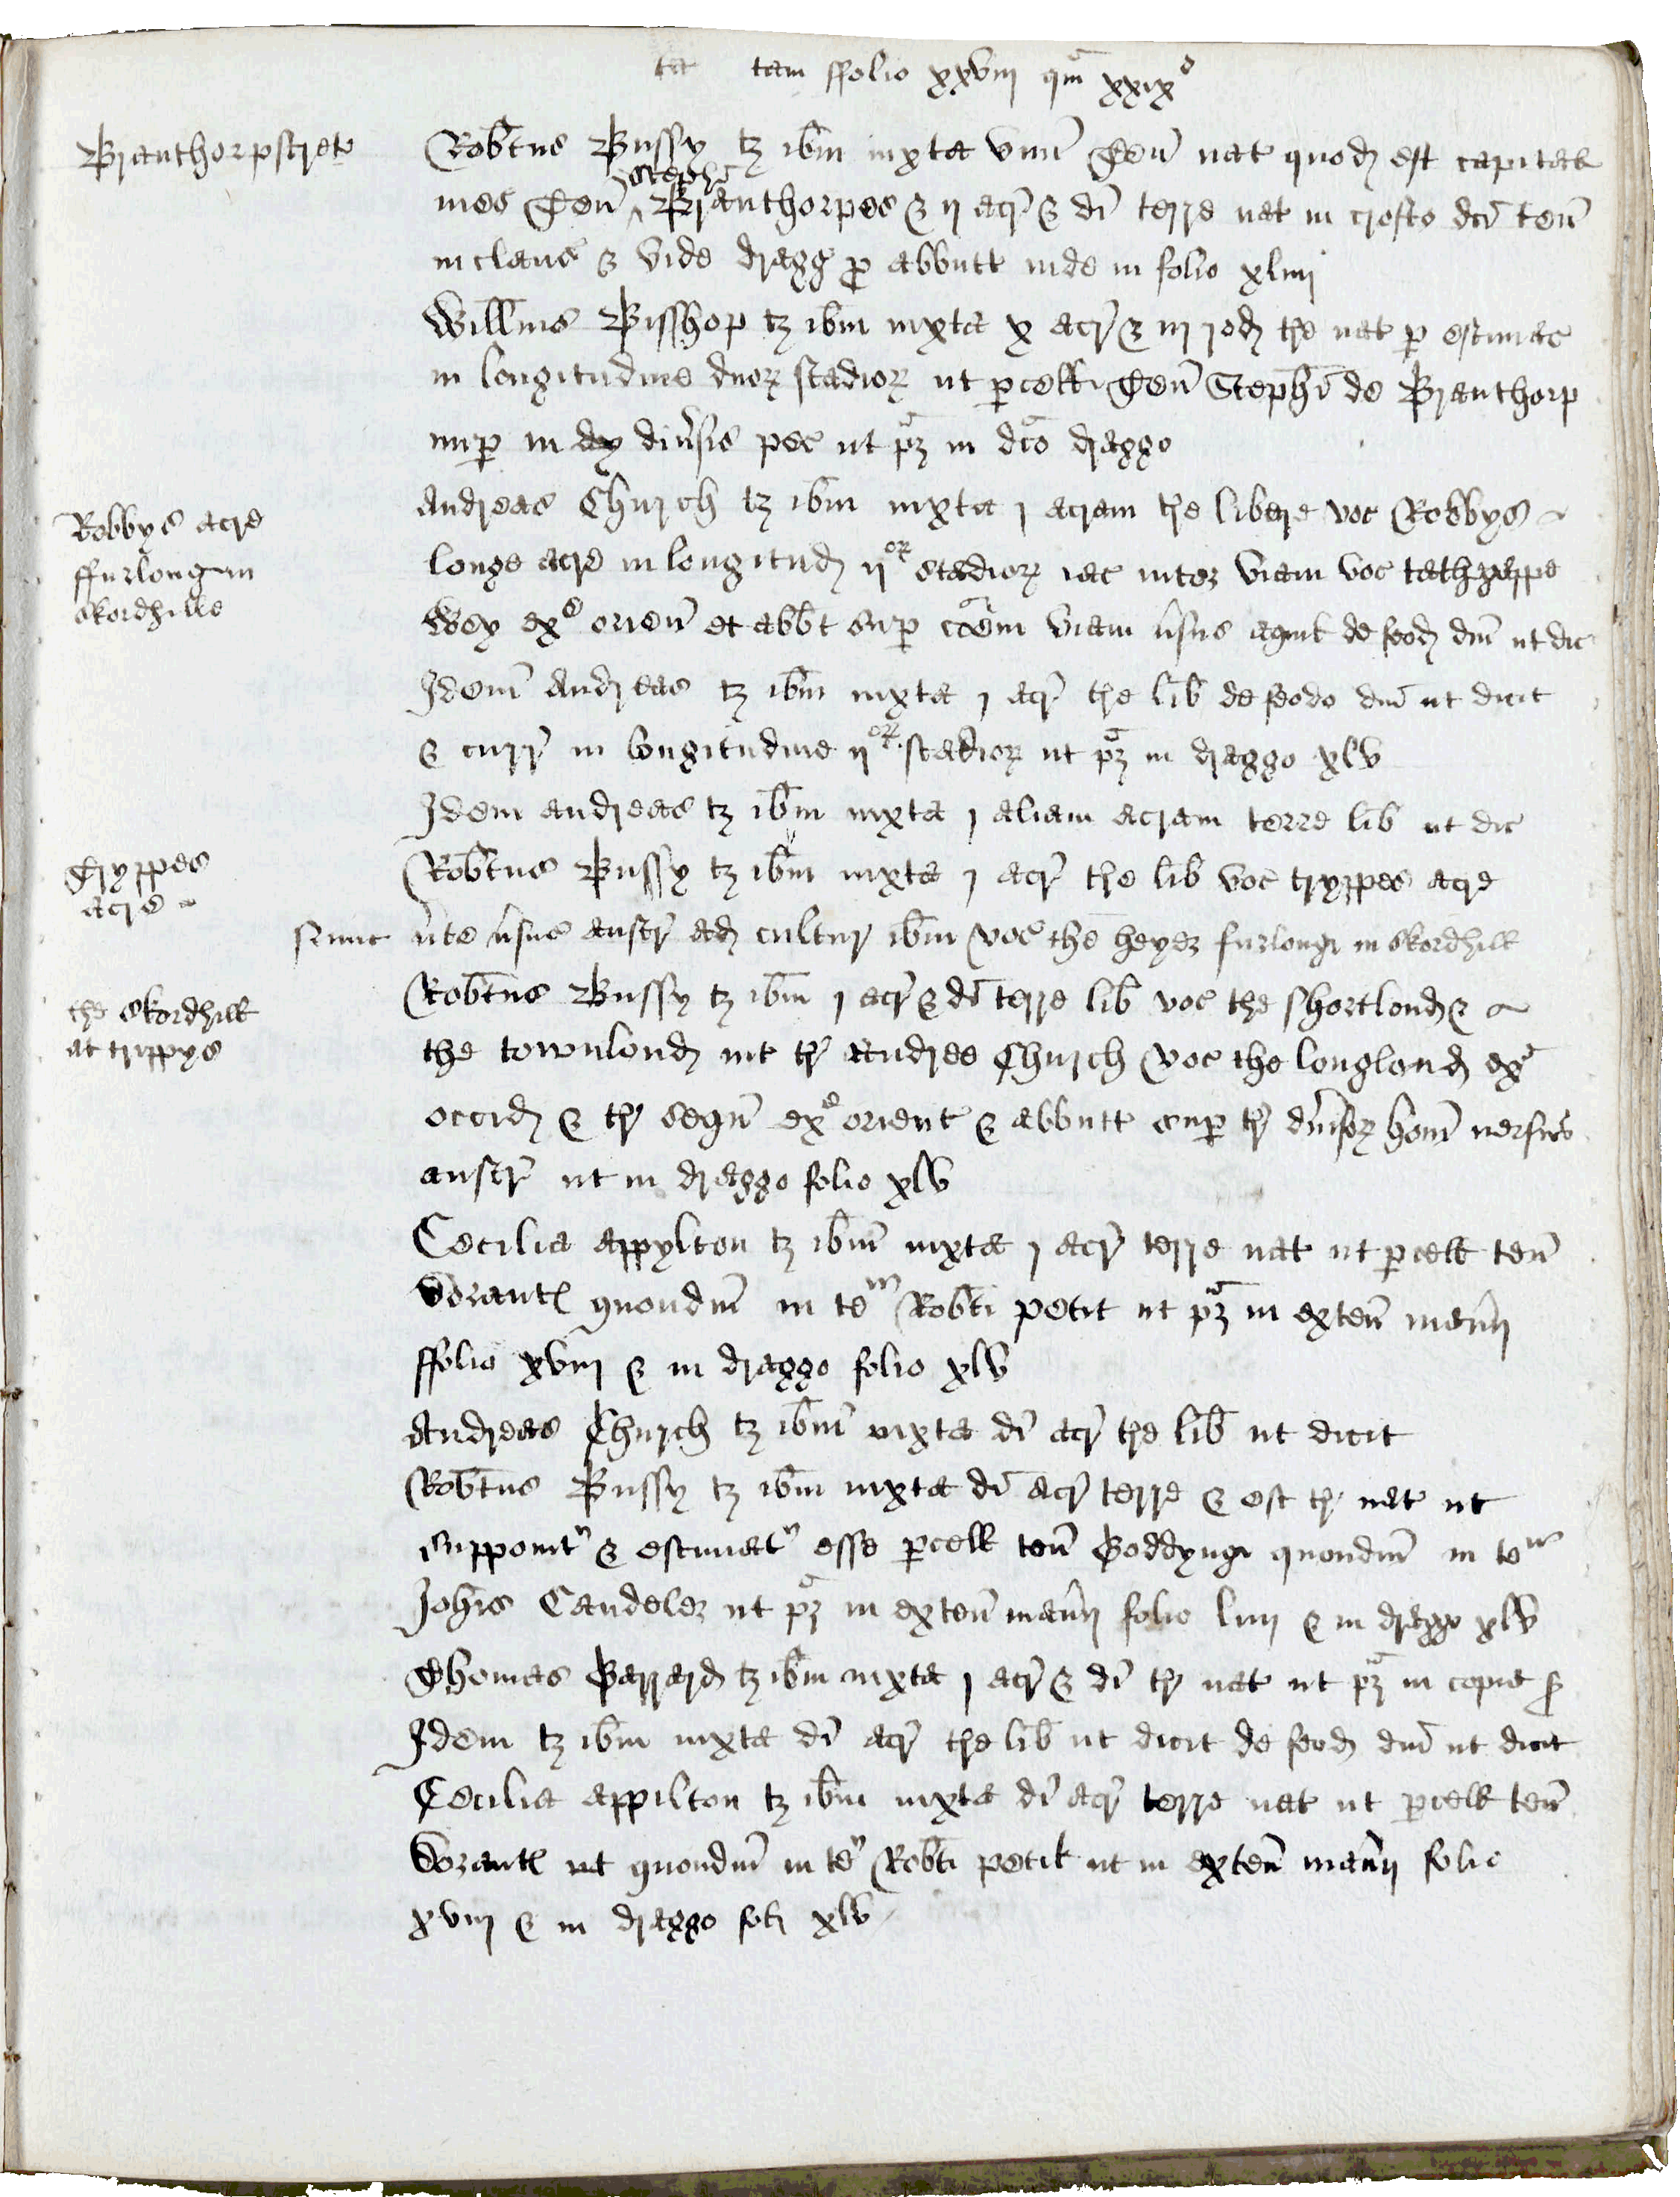 ta tam ffolio xxviij qm̄ xxixo
Branthorpstrete
Robt̄us Bussy tȝ ibm̄ iuxta vnū Ten̄ nat quod est capitale
Stephi
mes Ten̄ ^ Branthorpes & ij acr̄ & di terre nat in crofto dci ten̄
inclaus & vide dragg p abbutt inde in folio xliiij
Willms Bisshop tȝ ibm̄ iuxta x acr̄ & iij rod tre nat p estimac
in longitudine duoꝝ stadioꝝ ut pcell Ten̄ Stephi de Branthorp
nup in diu̕sis pec ut pȝ in dco draggo
Robbys acre
ffurlong in
Skordhille
Andreas Church tȝ ibm̄ iuxta j acram tre libere voc Robbys
longe acre in longitud ijoꝝ stadioꝝ iac inter viam voc
Wey ex orien̄ et abbt sup coem viam v̕sus aquil de feod dni ut dic
Idem Andreas tȝ ibm̄ iuxta j acr̄ tre lib de feodo dni ut dicit
& curr̄ in longitudine ijoꝝ stadioꝝ ut pȝ in draggo xlv
Idem andreas tȝ ibm̄ iuxta j aliam acram terre lib ut dic
Tryppes
acre
Robt̄us Bussy tȝ ibm̄ iuxta j acr̄ tre lib voc tryppes acre
v̕te v̕sus austr̄ ad cultur ibm̄ voc the heyer furlong in Skordhill
the Skordhill
at trippys
Robt̄us Bussy tȝ ibm̄ j acr̄ & di terre lib voc the shortlond &
the townlond int tr̄ Andree Church voc the longlond ex
occid & tr̄ segn̄ ex orient & abbutt sup tr̄ diu̕soꝝ hom̄ versus
austr̄ ut in draggo folio xlv
Cecilia appylton tȝ ibm̄ iuxta j acr̄ terre nat ut pcell ten̄
quondm̄ in te Robti petit ut pȝ in exten̄ man̄ij
ffolio xviij & in draggo folio xlv
Andreas Church tȝ ibm̄ iuxta di acr̄ tre lib ut dicit
Robt̄us Bussy tȝ ibm̄ iuxta di acr̄ terre & est tr̄ nat ut
supponit & estimat esse pcell ten̄ Goddyng quondm̄ in te
Johis Candeler ut pȝ in exten̄ man̄ij folio liij & in draggo xlv
Thomas Garrard tȝ ibm̄ iuxta j acr̄ & di tr̄ nat ut pȝ in copia
Idem tȝ ibm̄ iuxta di acr̄ tre lib ut dicit de feod dni ut dicit
Cecilia appilton tȝ ibm̄ iuxta di acr̄ terre nat ut pcell ten̄
ut quondm̄ in te Robti petit ut in exten̄ man̄ij folio
xviij & in draggo fol xlv